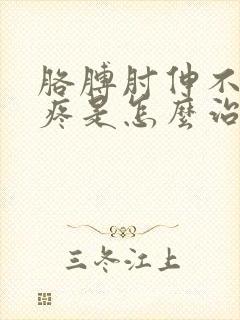 胳膊肘伸不
疼是怎麼治
三冬江上